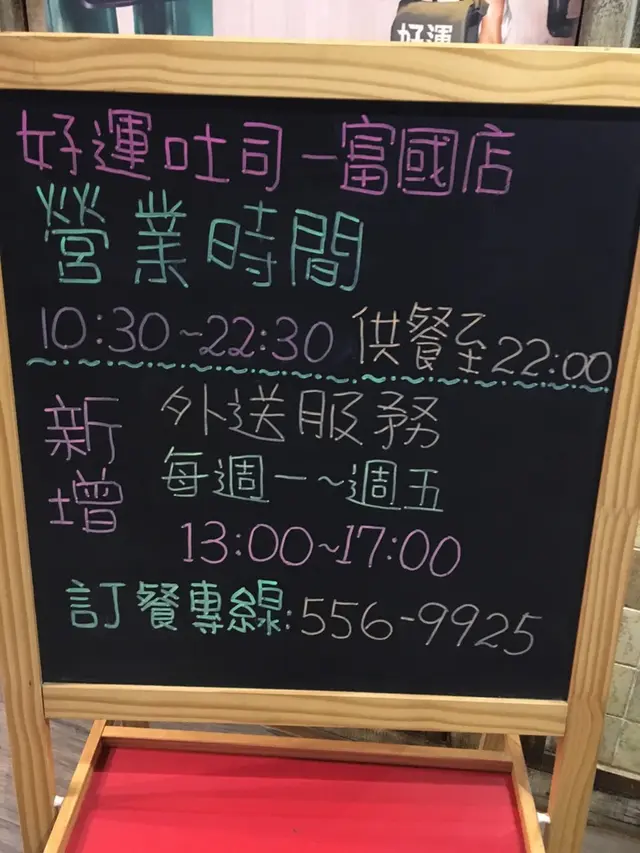 好運
好運吐司－富國店
營業時間
10:30~22:30 供餐至22:00
新增
外送服務
每週一~週五
13:00~17:00
訂餐專線:556-9925